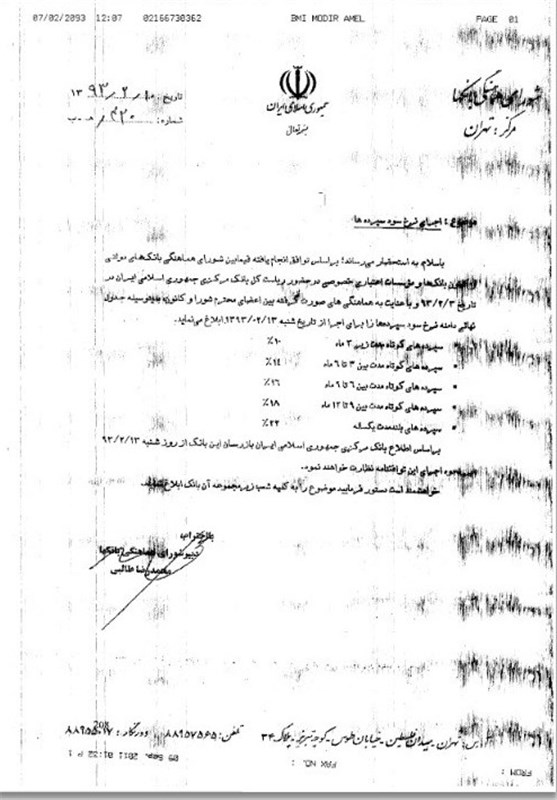 07/02/2093 12:07 02166730362 BMI MODIR AMEL PAGE 01
جمهوری اسلامی ایران
بسمه تعالی
شورای هماهنگی بانکها
مرکز: تهران
تاریخ: ۱۳۹۳٫۲٫۱۰
شماره:
موضوع: اجرای نرخ سود سپرده ها
باسلام، به استحضار می‌رساند؛ براساس توافق انجام یافته فیمابین شورای هماهنگی بانک‌های دولتی
بانک‌ها و مؤسسات اعتباری خصوصی در حضور ریاست کل بانک مرکزی جمهوری اسلامی ایران در
تاریخ ۹۳/۲/۳ و با عنایت به هماهنگی های صورت گرفته بین اعضای محترم شورا و کانون، بدینوسیله جدول
نهائی دامنه نرخ سود سپرده‌ها را برای اجرا از تاریخ شنبه ۱۳۹۳/۰۲/۱۳ ابلاغ می‌نماید.
سپرده های کوتاه مدت زیر ۳ ماه ۱۰٪
سپرده های کوتاه مدت بین ۳ تا ۶ ماه ۱۴٪
سپرده های کوتاه مدت بین ۶ تا ۹ ماه ۱۶٪
سپرده های کوتاه مدت بین ۹ تا ۱۲ ماه ۱۸٪
سپرده های بلندمدت یکساله ۲۲٪
براساس اطلاع بانک مرکزی جمهوری اسلامی ایران بازرسان این بانک از روز شنبه ۹۳/۲/۱۳
نحوه اجرای این توافقنامه نظارت خواهند نمود.
خواهشمند است دستور فرمایید موضوع را به کلیه شعب زیرمجموعه آن بانک ابلاغ نمایند.
دبیر شورای هماهنگی بانکها
محمدرضا طالبی
آدرس: تهران - میدان فلسطین - خیابان طوس - کوچه تبریز - پلاک ۳۴ تلفن: ۸۸۹۵۷۵۶۵ دورنگار:
FROM : FAX NO. : 09 Sep. 2011 01:32 P 1